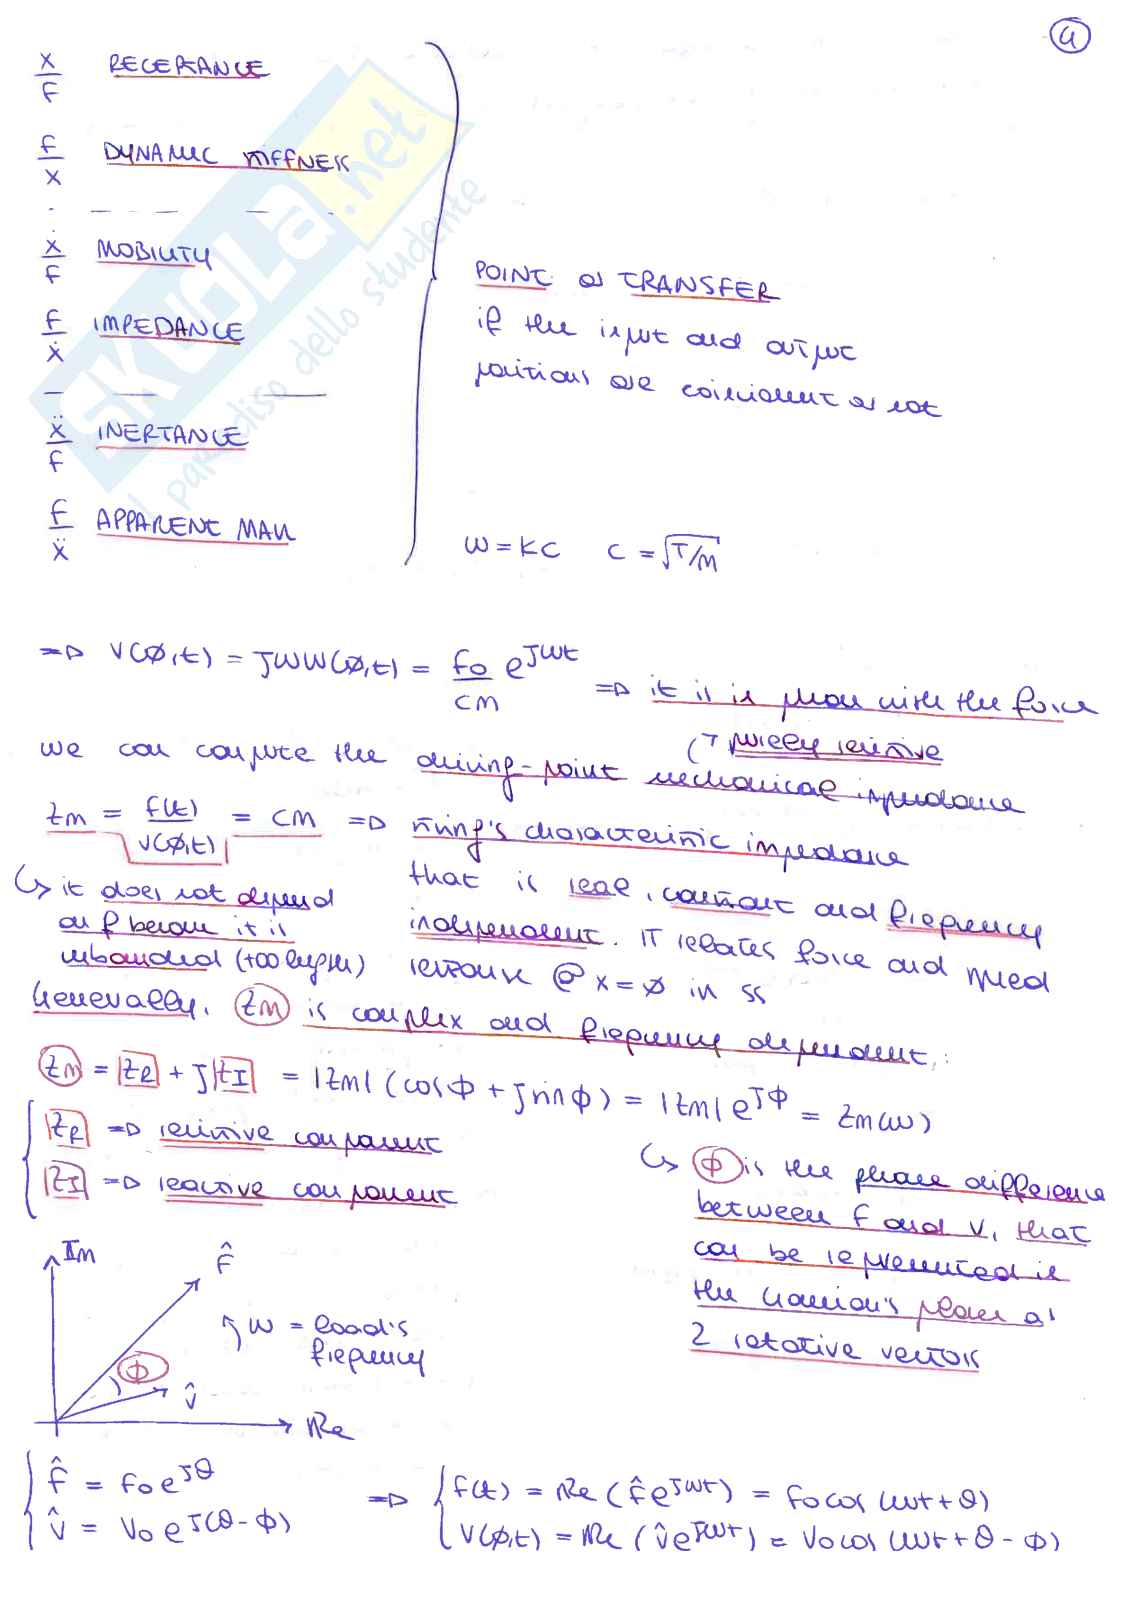 4
x/F RECEPTANCE
F/x DYNAMIC STIFFNESS
ẋ/F MOBILITY
F/ẋ IMPEDANCE
ẍ/F INERTANCE
F/ẍ APPARENT MASS
POINT or TRANSFER
if the input and output
positions are coincident or not
ω = kc c = √T/m
=> v(∅,t) = jωw(∅,t) = F0/cm e^jωt => it is in phase with the force
(↑ purely resistive
we can compute the driving-point mechanical impedance
zm = f(t)/v(∅,t) = cm => string's characteristic impedance
that is real, constant and frequency
independent. IT relates force and speed
response @ x=∅ in ss
↳ it does not depend
on f because it is
unbounded (+∞ length)
Generally, zm is complex and frequency dependent:
zm = zR + j zI = |zm| (cosϕ + jsinϕ) = |zm| e^jϕ = zm(ω)
zR => resistive component
zI => reactive component
↳ ϕ is the phase difference
between F and v, that
can be represented in
the Gaussian's plane as
2 rotative vectors
Im
F̂
ω = load's
frequency
ϕ
v̂
Re
F̂ = F0 e^jθ
v̂ = v0 e^j(θ-ϕ)
=> f(t) = Re (F̂e^jωt) = F0 cos (ωt+θ)
v(∅,t) = Re (v̂e^jωt) = v0 cos (ωt+θ-ϕ)
SKUOLA.net
il paradiso dello studente